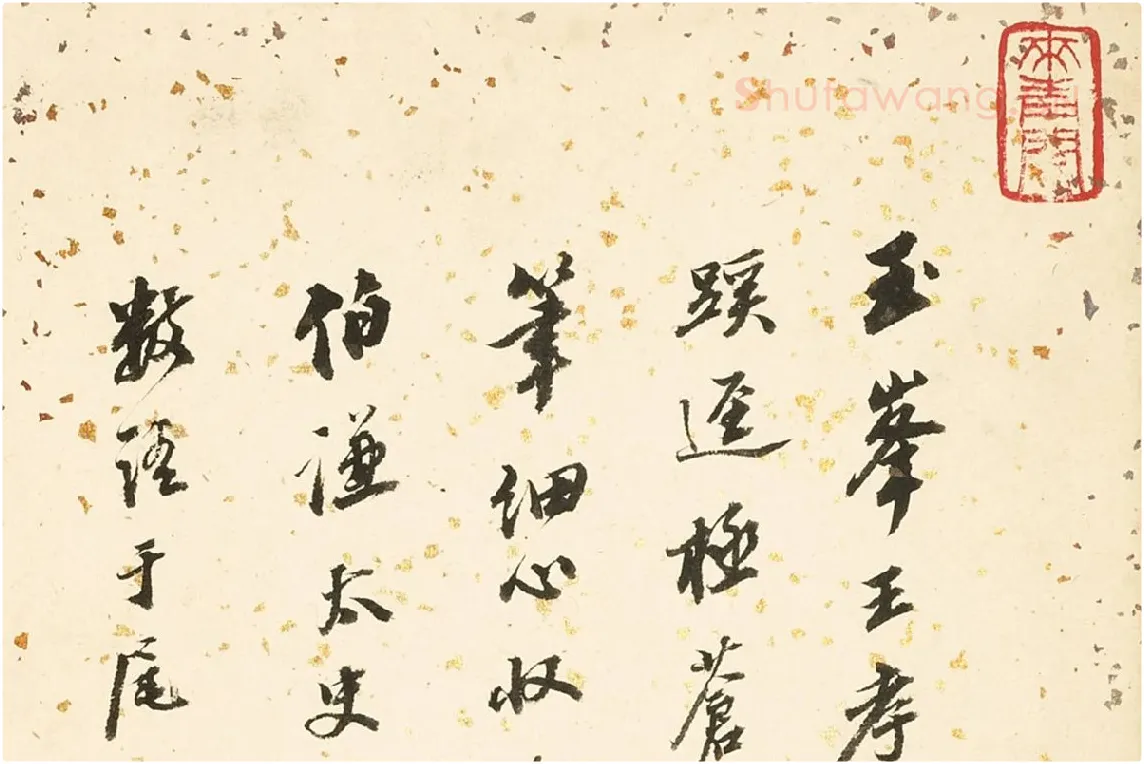 玉峯王孝
蹊逕極蒼
筆細心収
伯謙太史
數語于尾
來青閣
Shufawang